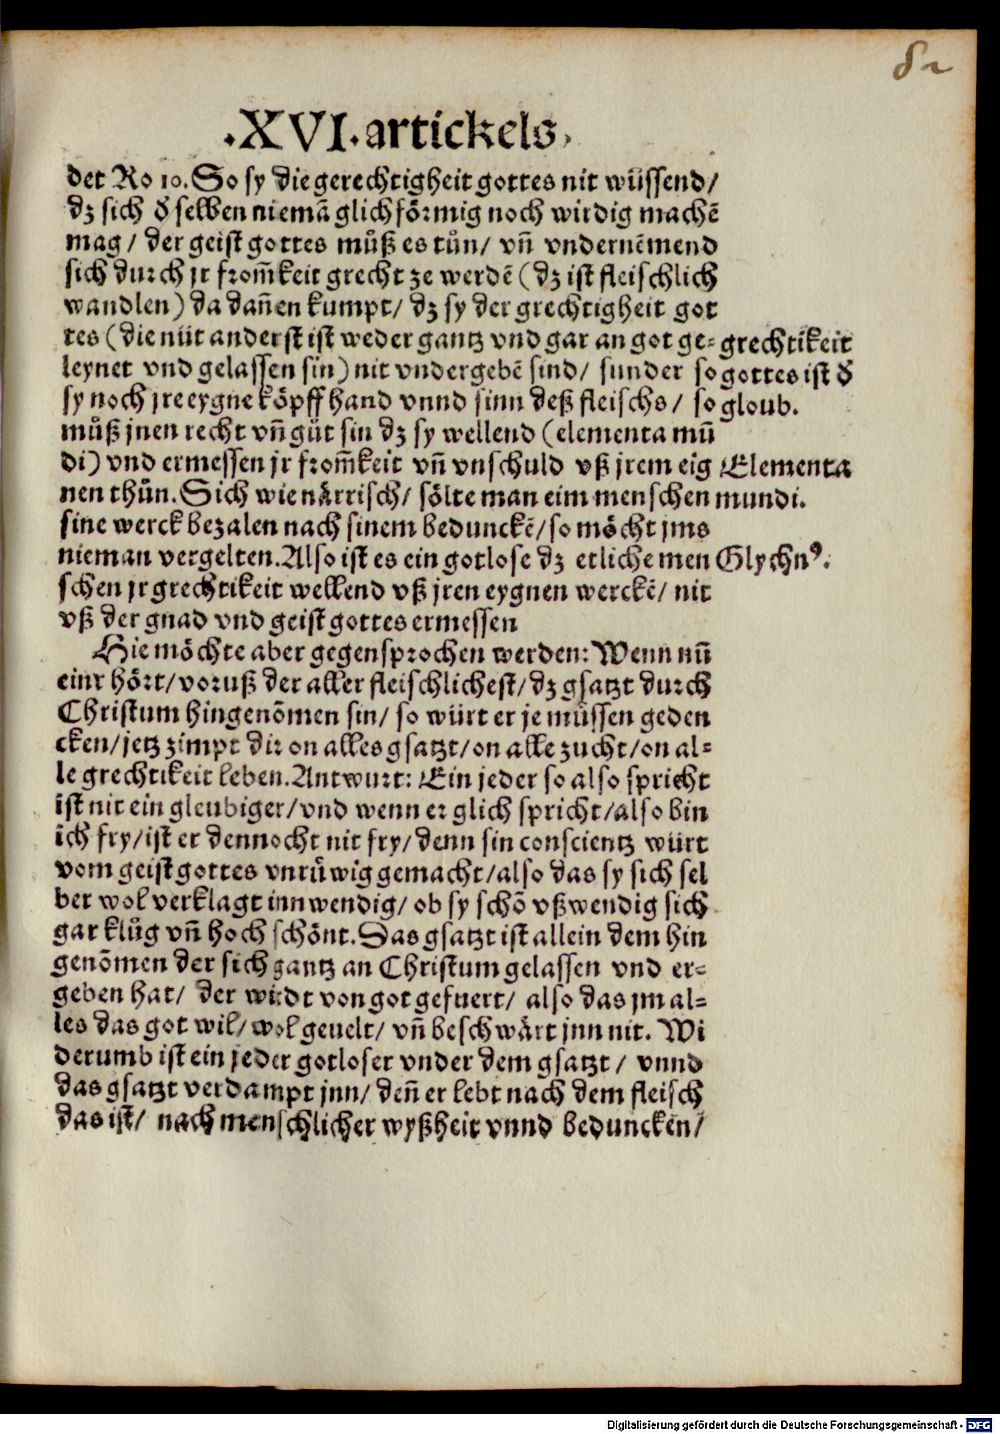 82
.XVI. artickels.
det Ro 10. So sy die gerechtigheit gottes nit wüssend/
dz sich d̕ selben niemā glichförmig noch wirdig machē
mag/ der geist gottes můß es tůn/ vn̄ vndernēmend
sich durch jr from̄keit grecht ze werdē (dz ist fleischlich
wandlen) da dan̄en kumpt/ dz sy der grechtigheit got
tes (die nüt anderst ist weder gantz vnd gar an got ge-
leynet vnd gelassen sin) nit vndergebē sind/ sunder so
sy noch jre eygne köpff hand vnnd sinn deß fleischs/ so
můß jnen recht vn̄ gůt sin dz sy wellend (elementa mū
di) vnd ermessen jr from̄keit vn̄ vnschuld vß jrem eig
nen thůn. Sich wie närrisch/ sölte man eim menschen
sine werck bezalen nach sinem bedunckē/ so möcht jms
nieman vergelten. Also ist es ein gotlose dz etliche men
schen jr grechtikeit wellend vß jren eygnen werckē/ nit
vß der gnad vnd geist gottes ermessen
grechtikeit
gottes ist d̕
gloub.
Elementa
mundi.
Glychnꝰ.
Hie möchte aber gegensprochen werden: Wenn nū
einr hört/ voruß der aller fleischlichest/ dz gsatzt durch
Christum hingenōmen sin/ so würt er je müssen geden
cken/ jetz zimpt dir on alles gsatzt/ on alle zucht/ on al-
le grechtikeit leben. Antwurt: Ein jeder so also spricht
ist nit ein gleubiger/ vnd wenn er glich spricht/ also bin
ich fry/ ist er dennocht nit fry/ denn sin conscientz würt
vom geist gottes vnrüwig gemacht/ also das sy sich sel
ber wol verklagt innwendig/ ob sy schō vßwendig sich
gar klůg vn̄ hoch schönt. Das gsatzt ist allein dem hin
genōmen der sich gantz an Christum gelassen vnd er-
geben hat/ der wirdt von got gefuert/ also das jm al-
les das got wil/ wol geuelt/ vn̄ beschwärt jnn nit. Wi
derumb ist ein jeder gotloser vnder dem gsatzt/ vnnd
das gsatzt verdampt jnn/ den̄ er lebt nach dem fleisch
das ist/ nach menschlicher wyßheit vnnd beduncken/
Digitalisierung gefördert durch die Deutsche Forschungsgemeinschaft - DFG